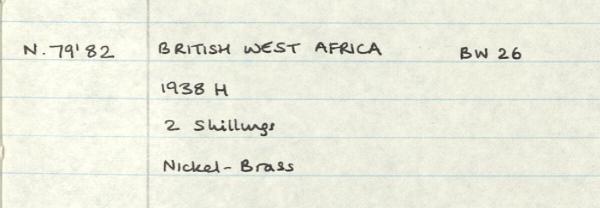 N.79'82 BRITISH WEST AFRICA BW 26
1938 H
2 Shillings
Nickel-Brass